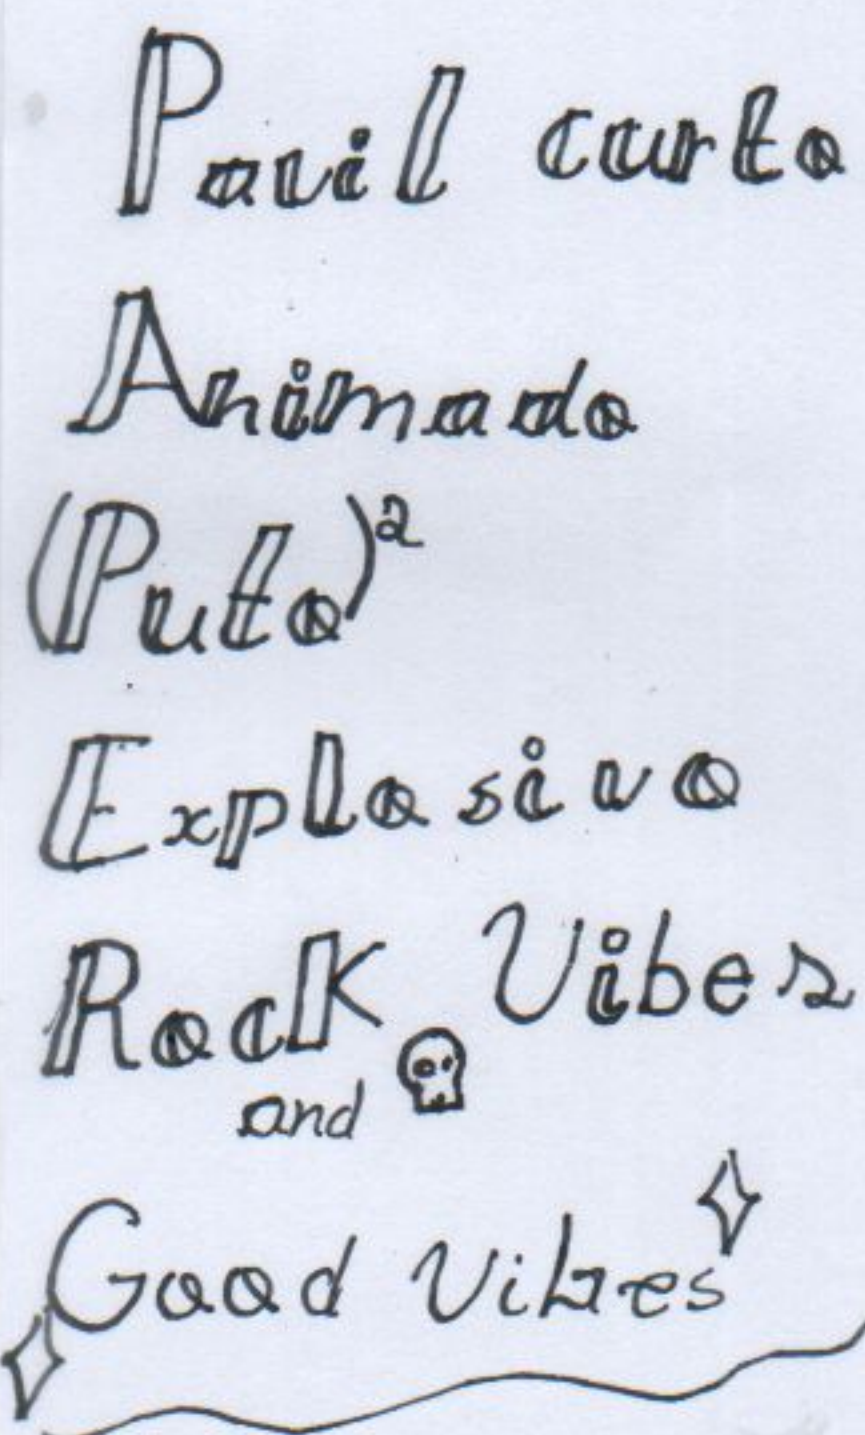 Pavil curto
Animado
(Puto)²
Explosivo
Rock Vibes
and
Good Vibes